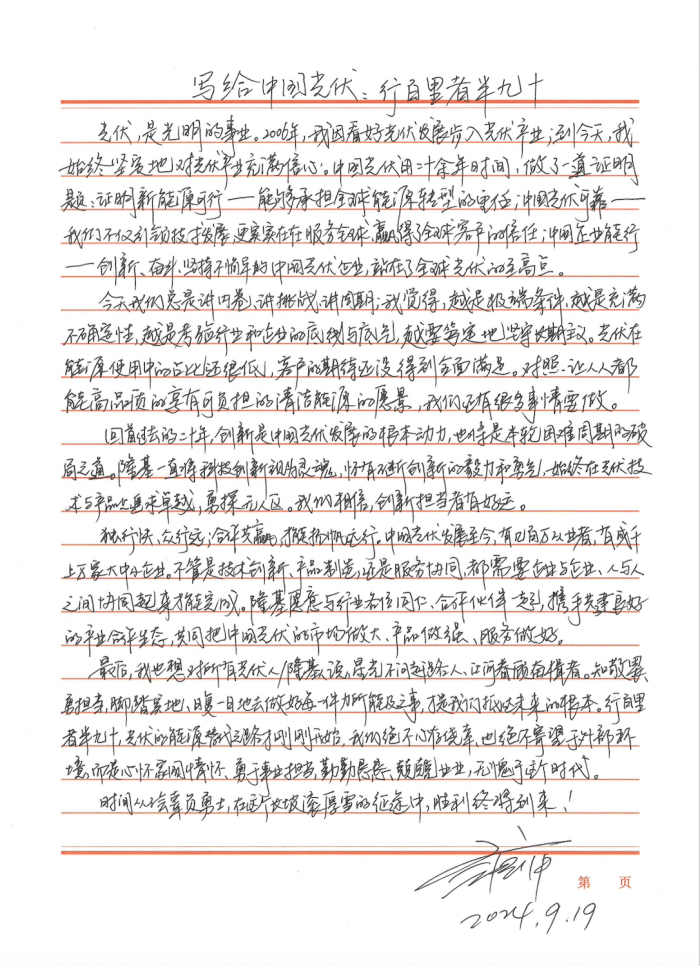 写给中国光伏：行百里者半九十
光伏，是光明的事业。2006年，我因看好光伏发展步入光伏产业；到今天，我
始终坚定地对光伏产业充满信心。中国光伏用二十余年时间，做了一道证明
题、证明新能源可行——能够承担全球能源转型的重任；中国光伏可靠——
我们不仅引领技术发展、更实实在在服务全球、赢得了全球客户的信任；中国企业能行
——创新、奋斗、坚持不懈的中国光伏企业，站在了全球光伏的至高点。
今天我们总是讲内卷、讲挑战、讲周期；我觉得，越是极端条件，越是充满
不确定性，越是考验行业和企业的底线与底气，越要笃定地坚守长期主义。光伏在
能源使用中的占比还很低，客户的期待还没得到全面满足。对照让人人都
能高品质的享有可负担的清洁能源的愿景，我们还有很多事情要做。
回首过去的二十年，创新是中国光伏发展的根本动力，也将是本轮困难周期的破
局之道。隆基一直将科技创新视为灵魂，怀有不断创新的毅力和勇气，始终在光伏技
术与产品上追求卓越，勇探无人区。我们相信，创新担当者有好运。
独行快、众行远；合作共赢，才能扬帆远行。中国光伏发展至今，有几百万从业者，有成千
上万家大中小企业。不管是技术创新、产品制造，还是服务协同，都需要企业与企业、人与人
之间协同起来才能完成。隆基愿意与行业各位同仁、合作伙伴一起，携手共建良好
的产业合作生态，共同把中国光伏的市场做大、产品做强、服务做好。
最后，我也想对所有光伏人/隆基人说，星光不问赶路人、江河眷顾奋楫者。知敬畏
勇担当，脚踏实地、日复一日地去做好每一件力所能及之事，才是我们抵达未来的根本。行百里
者半九十，光伏的能源替代之路才刚刚开始，我们绝不心存侥幸、也绝不寄望于外部环
境，而是心怀家国情怀、勇于事业担当，勤勤恳恳、兢兢业业，无愧于新时代。
时间从不会辜负勇士，在这个长坡滚厚雪的征途中，胜利终将到来！
第 页
2024.9.19